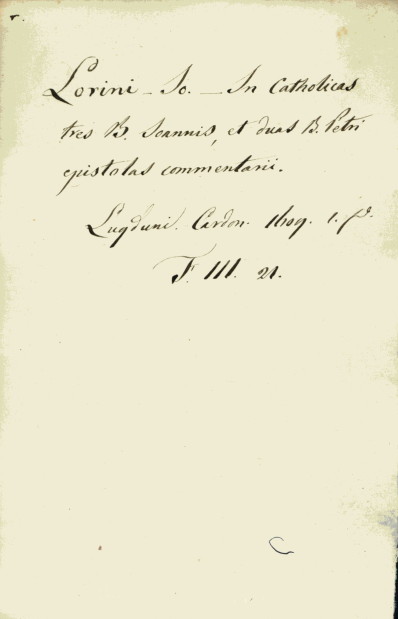 Lorini - Jo. - In Catholicas
tres B. Joannis, et duas B. Petri
epistolas commentarii.
Lugduni. Cardon. 1609. 1. f.º
F. III. 21.